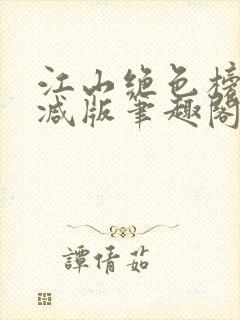 江山绝色榜
减版笔趣阁
譚倩茹